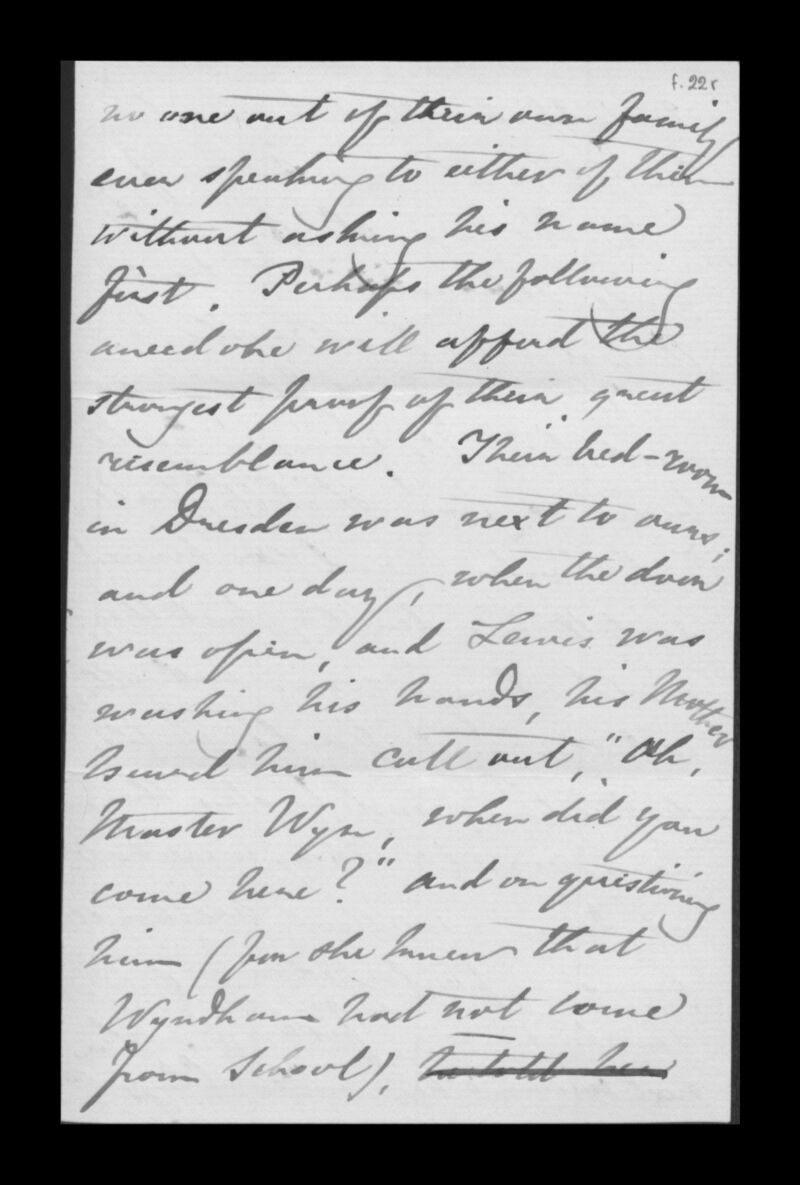 f. 22r
no one out of their own family
ever speaking to either of them
without asking his name
first. Perhaps the following
anecdote will afford the
strongest proof of their great
resemblance. Their bed-room
in Dresden was next to ours,
and one day, when the door
was open, and Lewis was
washing his hands, his Mother
heard him call out, "Oh,
Master Wyn, when did you
come here?" and on questioning
him (for she knew that
Wyndham had not come
from School), he told her